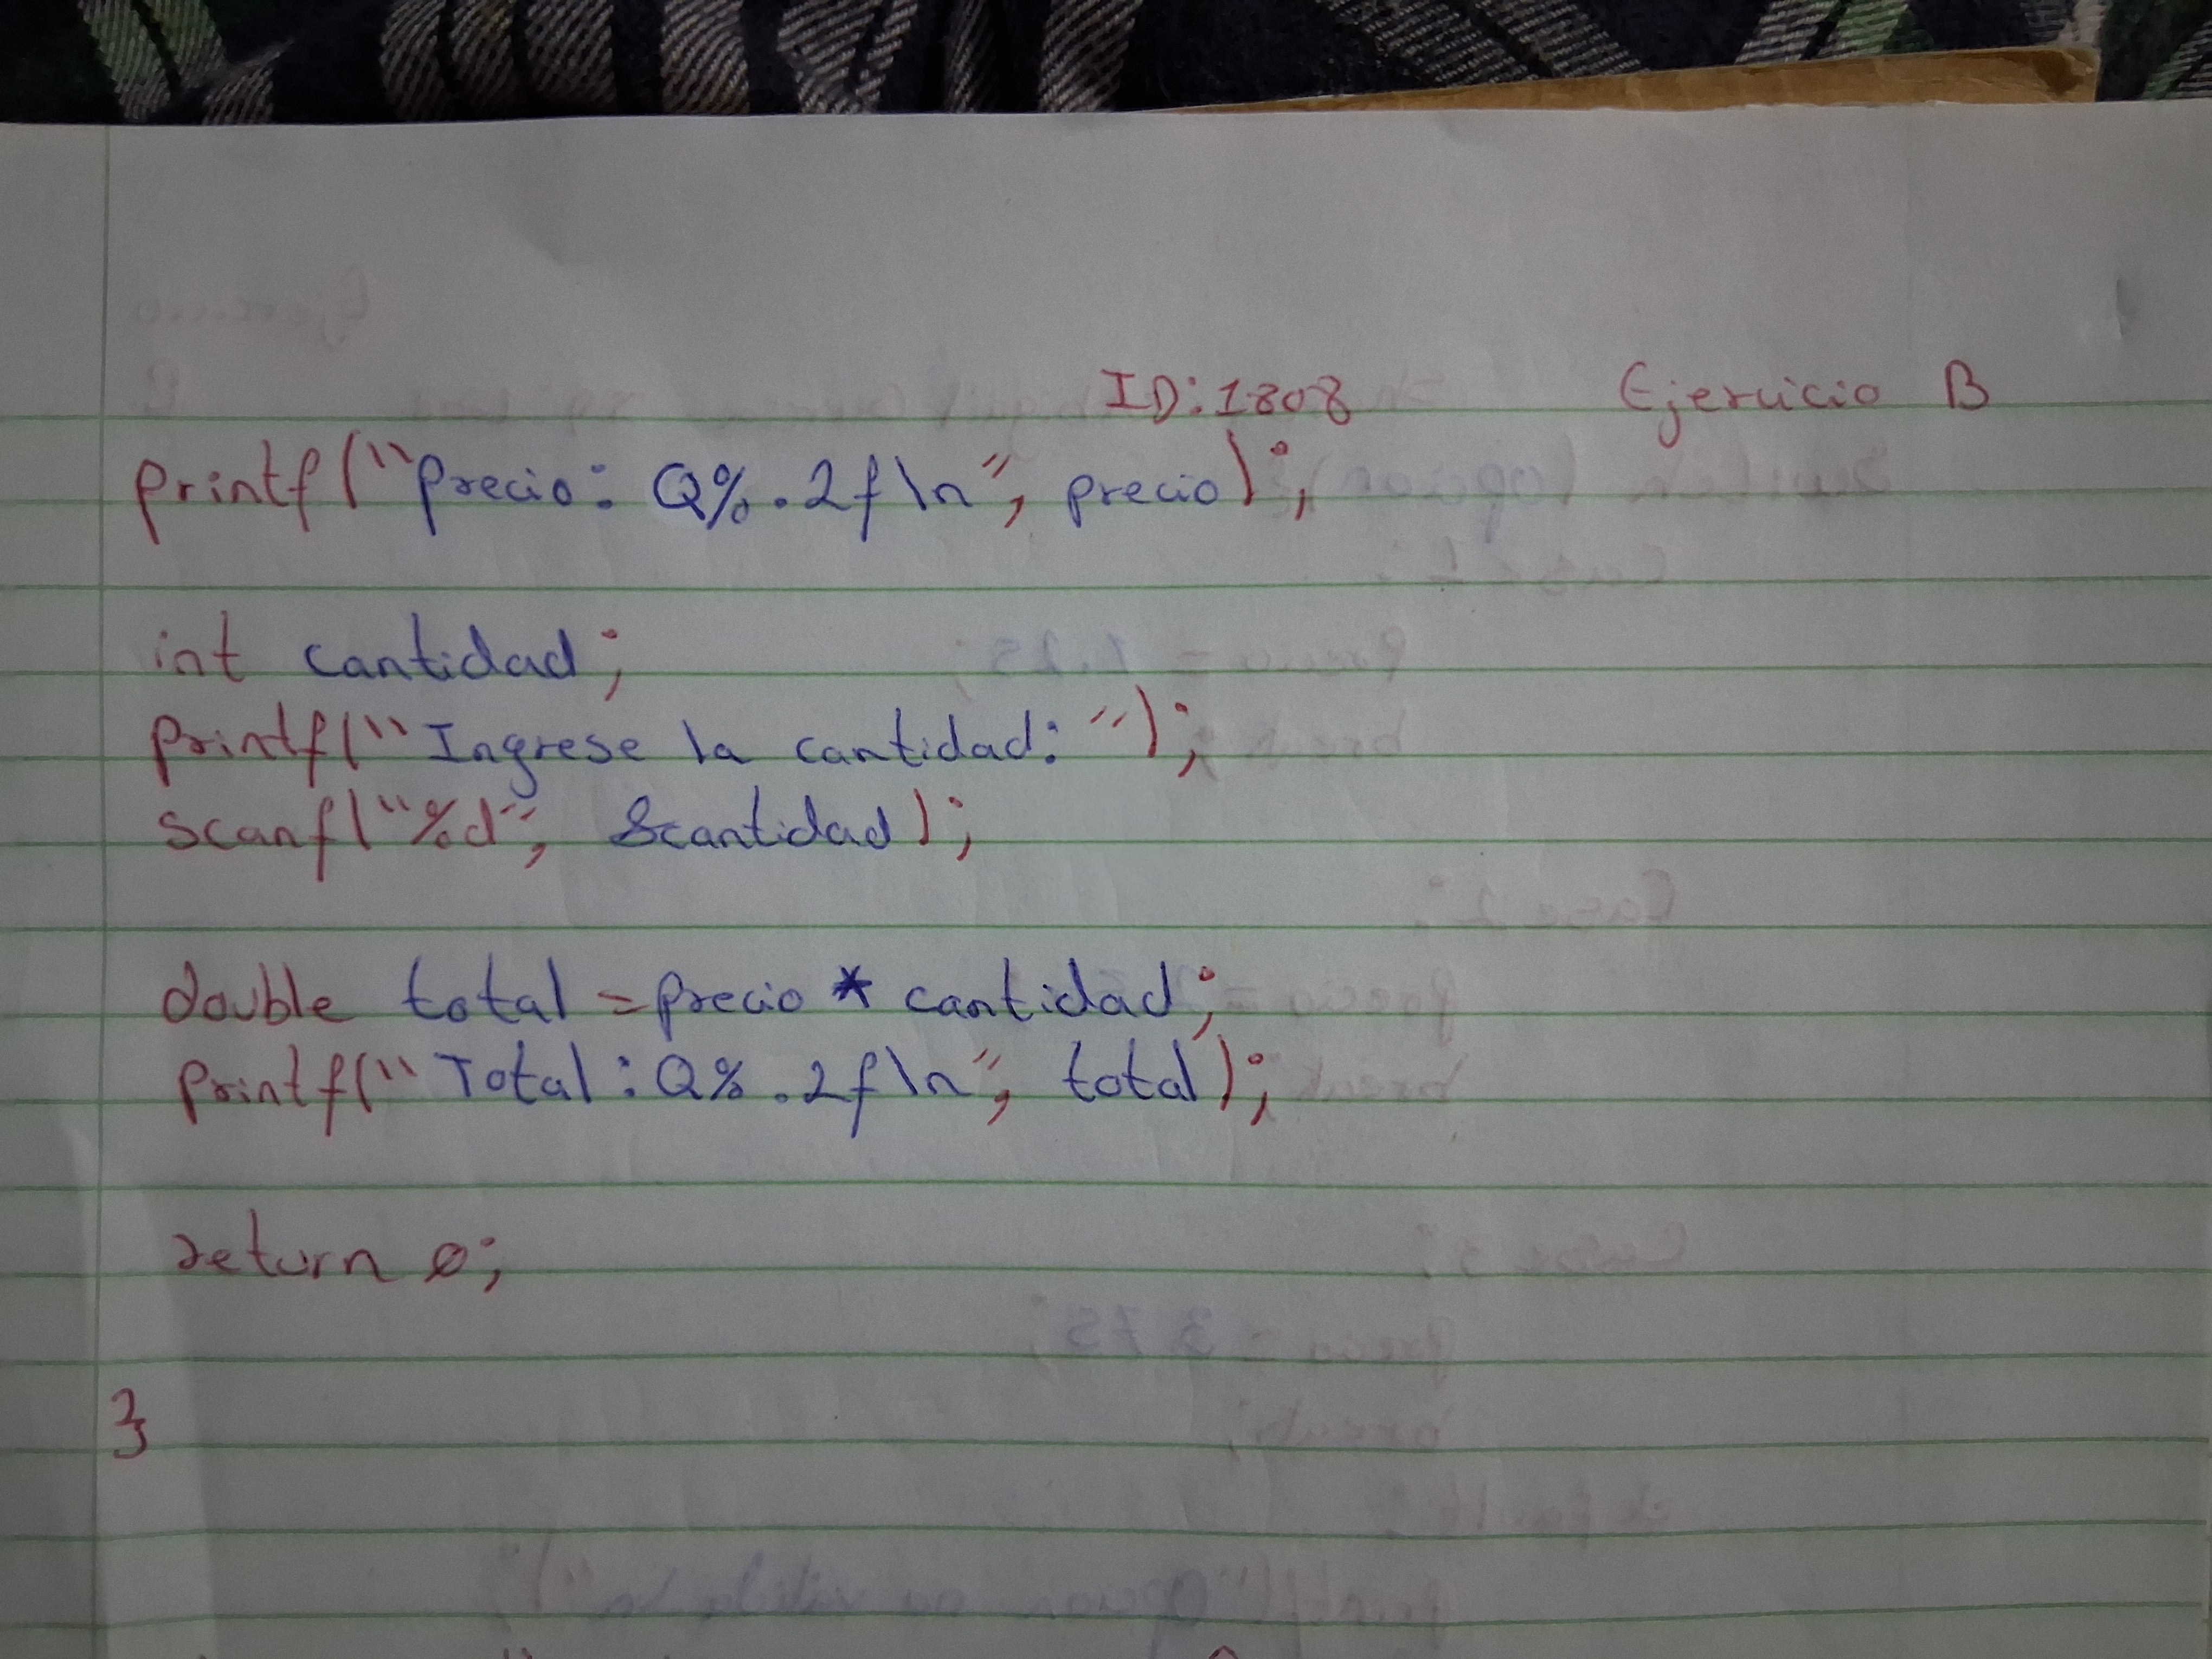 ID: 1808 Ejercicio B
printf("Precio: Q%.2f\n", precio);
int cantidad;
printf("Ingrese la cantidad: ");
scanf("%d", &cantidad);
double total = precio * cantidad;
printf("Total: Q%.2f\n", total);
return 0;
}